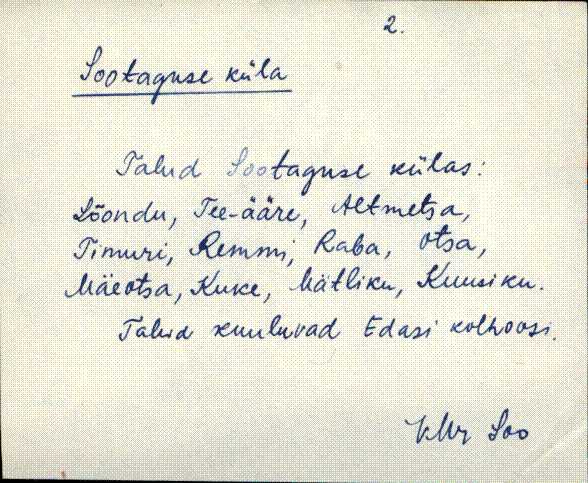 2.
Sootaguse küla
Talud Sootaguse külas:
Lõondu, Tee-ääre, Altmetsa,
Timuri, Remmi, Raba, Otsa,
Mäeotsa, Kuke, Mätliku, Kuusiku.
Talud kuuluvad Edasi kolhoosi.
Soo